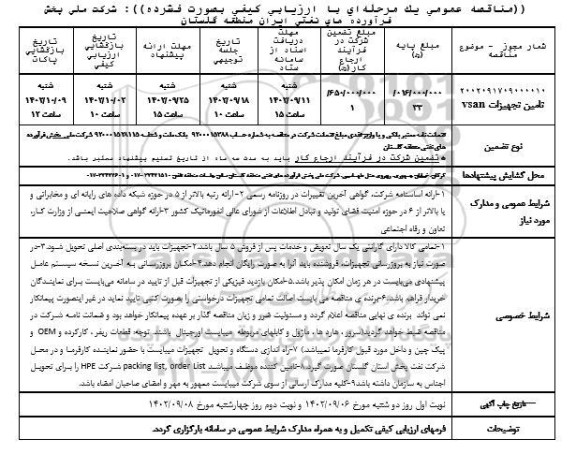 ((مناقصه عمومي يك مرحله‌اي با ارزيابي كيفي بصورت فشرده)): شركت ملي پخش
فرآورده هاي نفتي ايران منطقه گلستان
شماره مجوز - موضوع مناقصه
مبلغ پایه (ریال)
مبلغ تضمین شرکت در فرآیند ارجاع کار (ریال)
مهلت دریافت اسناد از سامانه ستاد
تاریخ جلسه توجیهی
مهلت ارائه پیشنهاد
تاریخ بازگشایی ارزیابی کیفی
تاریخ بازگشایی پاکات
۲۰۰۲۰۹۱۷۰۹۰۰۰۰۱۰
تامین تجهیزات vsan
شنبه ۱۴۰۲/۰۹/۱۱ ساعت ۱۰
شنبه ۱۴۰۲/۰۹/۱۸ ساعت ۱۰
شنبه ۱۴۰۲/۰۹/۲۵ ساعت ۱۵
شنبه ۱۴۰۲/۱۰/۰۲ ساعت ۱۰
شنبه ۱۴۰۲/۱۰/۰۹ ساعت ۱۲
نوع تضمین
*تضمین شرکت در فرآیند ارجاع کار باید به مدت سه ماه از تاریخ تسلیم پیشنهاد معتبر باشد.
محل گشایش پیشنهادها
شرایط عمومی و مدارک مورد نیاز
۱-ارائه اساسنامه شرکت، گواهی آخرین تغییرات در روزنامه رسمی ۲-ارائه رتبه بالاتر از ۵ در حوزه شبکه داده های رایانه ای و مخابراتی و
یا بالاتر از ۶ در حوزه امنیت فضای تولید و تبادل اطلاعات از شورای عالی انفورماتیک کشور ۳-ارائه گواهی صلاحیت ایمنی از وزارت کار،
تعاون و رفاه اجتماعی
شرایط خصوصی
۱-تمامی کالا دارای گارانتی یک سال تعویض و خدمات پس از فروش ۵ سال باشد.۲-تجهیزات باید در بسته‌بندی اصلی تحویل شود.۳-در
صورت نیاز به بروزرسانی تجهیزات، فروشنده باید آنرا به صورت رایگان انجام دهد.۴-امکان بروزرسانی به آخرین نسخه سیستم عامل
پیشنهادی می‌بایست در هر زمان امکان پذیر باشد.۵-امکان بازدید فیزیکی از تجهیزات قبل از تایید در سامانه می‌بایست برای نمایندگان
خریدار فراهم باشد.۶-برنده ی مناقصه می بایست اصالت تمامی تجهیزات درخواستی را بصورت کتبی تایید نماید در غیر اینصورت پیمانکار
نمی تواند برنده ی نهایی مناقصه اعلام گردد و مسئولیت ضرر و زیان مناقصه گذار بر عهده پیمانکار خواهد بود و ضمانت نامه شرکت در
مناقصه ضبط خواهد گردید(سرور، هارد ها، ماژول و کابلهای مربوطه میبایست اورجینال باشند. توجه: قطعات ریفر، کارکرده و OEM و
پک چین و داخل مورد قبول کارفرما نمیباشد) ۷-راه اندازی دستگاه و تحویل تجهیزات میبایست با حضور نماینده کارفرما و در محل
شرکت نفت پخش استان گلستان صورت گیرد.۸-تامین کننده موظف میباشد packing list, order List شرکت HPE را برای تحویل
اجناس به سازمان داشته باشد ۹-کلیه مدارک ارسالی از سوی شرکت میبایست ممهور به مهر و امضای صاحبان امضاء باشد.
تاریخ چاپ آگهی
نوبت اول روز دو شنبه مورخ ۱۴۰۲/۰۹/۰۶ و نوبت دوم روز چهارشنبه مورخ ۱۴۰۲/۰۹/۰۸
توضیحات
فرمهای ارزیابی کیفی تکمیل و به همراه مدارک شرایط عمومی در سامانه بارگزاری گردد.